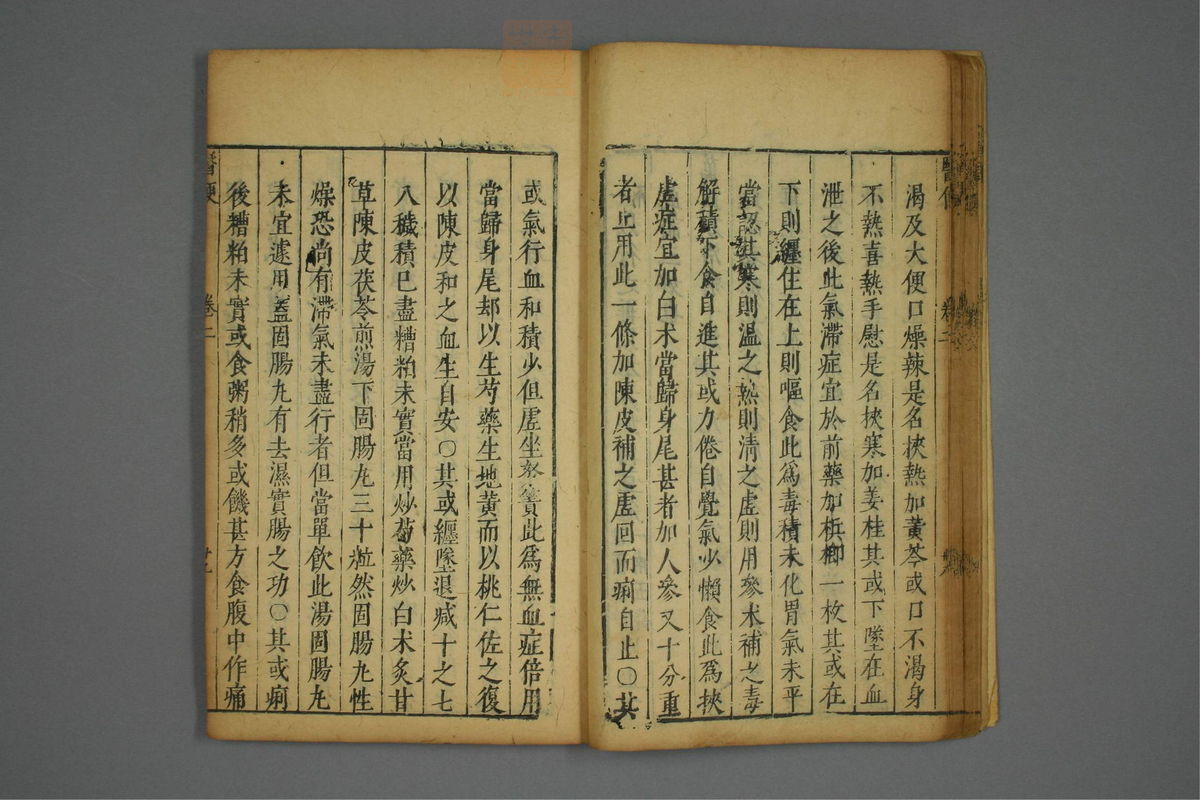 渴及大便口燥辣是名挾熱加黃芩或口不渴身
不熱喜熱手慰是名挾寒加姜桂其或下墜在血
泄之後此氣滯症宜於前藥加梹榔一枚其或在
下則纏住在上則嘔食此爲毒積未化胃氣未平
當認其寒則温之熱則清之虛則用參术補之毒
解積下食自進其或力倦自覺氣少懶食此爲挾
虛症宜加白术當歸身尾甚者加人參又十分重
者止用此一條加陳皮補之虛回而痢自止○其
或氣行血和積少但虛坐努責此爲無血症倍用
當歸身尾却以生芍藥生地黃而以桃仁佐之復
以陳皮和之血生自安○其或纏墜退减十之七
八穢積已盡糟粕未實當用炒芍藥炒白术炙甘
草陳皮茯苓煎湯下固腸丸三十粒然固腸丸性
燥恐尚有滯氣未盡行者但當單飲此湯固腸丸
未宜遽用蓋固腸丸有去濕實腸之功○其或痢
後糟粕未實或食粥稍多或饑甚方食腹中作痛
醫便
卷二